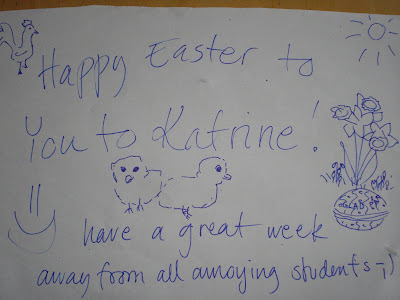 Happy Easter to
You to Katrine!
=)
have a great week
away from all annoying students ;)